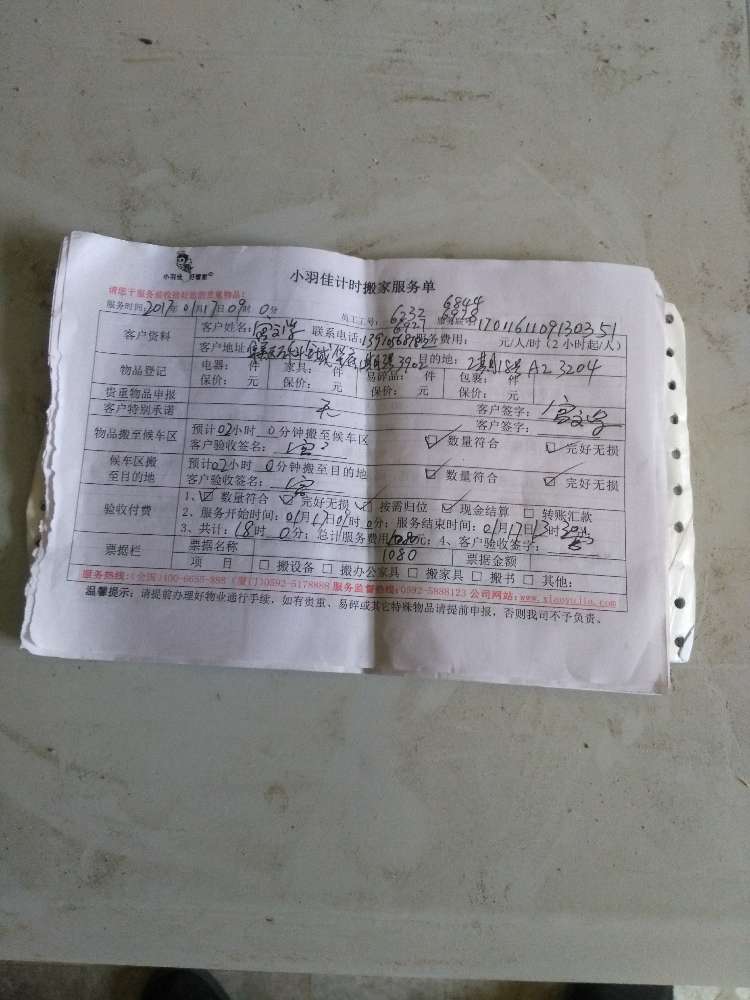 小羽佳 好管家
小羽佳计时搬家服务单
服务时间:2017年01月17日09时0分
员工工号: 6332 6844
6927 6978
17011611091303 51
客户资料 客户姓名: 联系电话: 服务费用: 元/人/时(2小时起/人)
客户地址: 3902 目的地: 2期18号A2 3204
物品登记 电器: 件 家具: 件 易碎品: 件 包裹: 件
保价: 元 保价: 元 保价: 元 保价: 元
贵重物品申报 无 客户签字:
客户特别承诺 客户签字:
物品搬至候车区 预计02小时 0分钟搬至候车区 ☑数量符合 ☑完好无损
客户验收签名:
候车区搬至目的地 预计02小时 0分钟搬至目的地 ☑数量符合 ☑完好无损
客户验收签名:
验收付费 1、☑数量符合 ☑完好无损 ☑按需归位 ☑现金结算 □转账汇款
2、服务开始时间:01月17日01时0分;服务结束时间:01月17日13时30分
3、共计:18时0分;总计服务费用1080元;4、客户验收签字:
票据栏 票据名称 1080 票据金额
项 目 □搬设备 □搬办公家具 □搬家具 □搬书 □其他:
服务热线:(全国)400-6655-888 (厦门)0592-5178888 服务监督热线:0592-5888123 公司网站:www.xiaoyujia.com
温馨提示:请提前办理好物业通行手续,如有贵重、易碎或其它特殊物品请提前申报,否则我司不予负责。